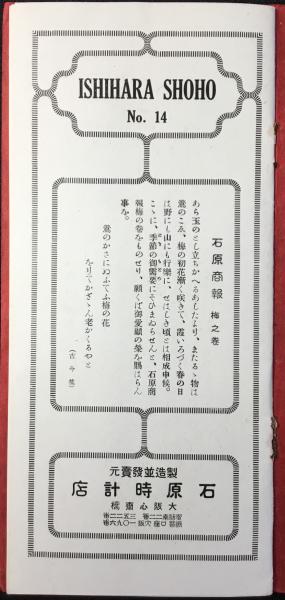 ISHIHARA SHOHO
No. 14
石原商報 梅之巻
あら玉のとし立ちかへるあしたより、またるゝ物は
鶯のこゑ、梅の初花漸く咲きて、霞いろづく春の日
は野にも山にも行樂に、せはしき頃とは相成申候。
こゝに、季節の御需要にそひまゐらせんと、石原商
報梅の巻をものせり、願くば御愛顧の榮を賜はらん
事を。
鶯のかさにぬふてふ梅の花
をりてかざゝん老かくるやと
（古今集）
元賣發並造製
店計時原石
大阪心齋橋